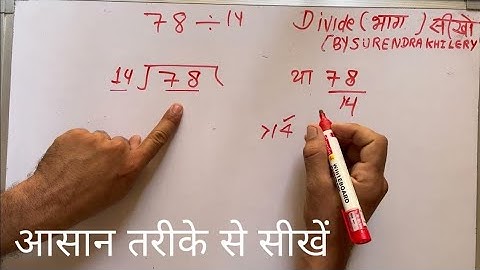 78 ÷ 14
Divide (भाग) सीखो
(BY SURENDRA KHILERY
14 78
या 78
14
>14
WHITEBOARD
आसान तरीके से सीखें